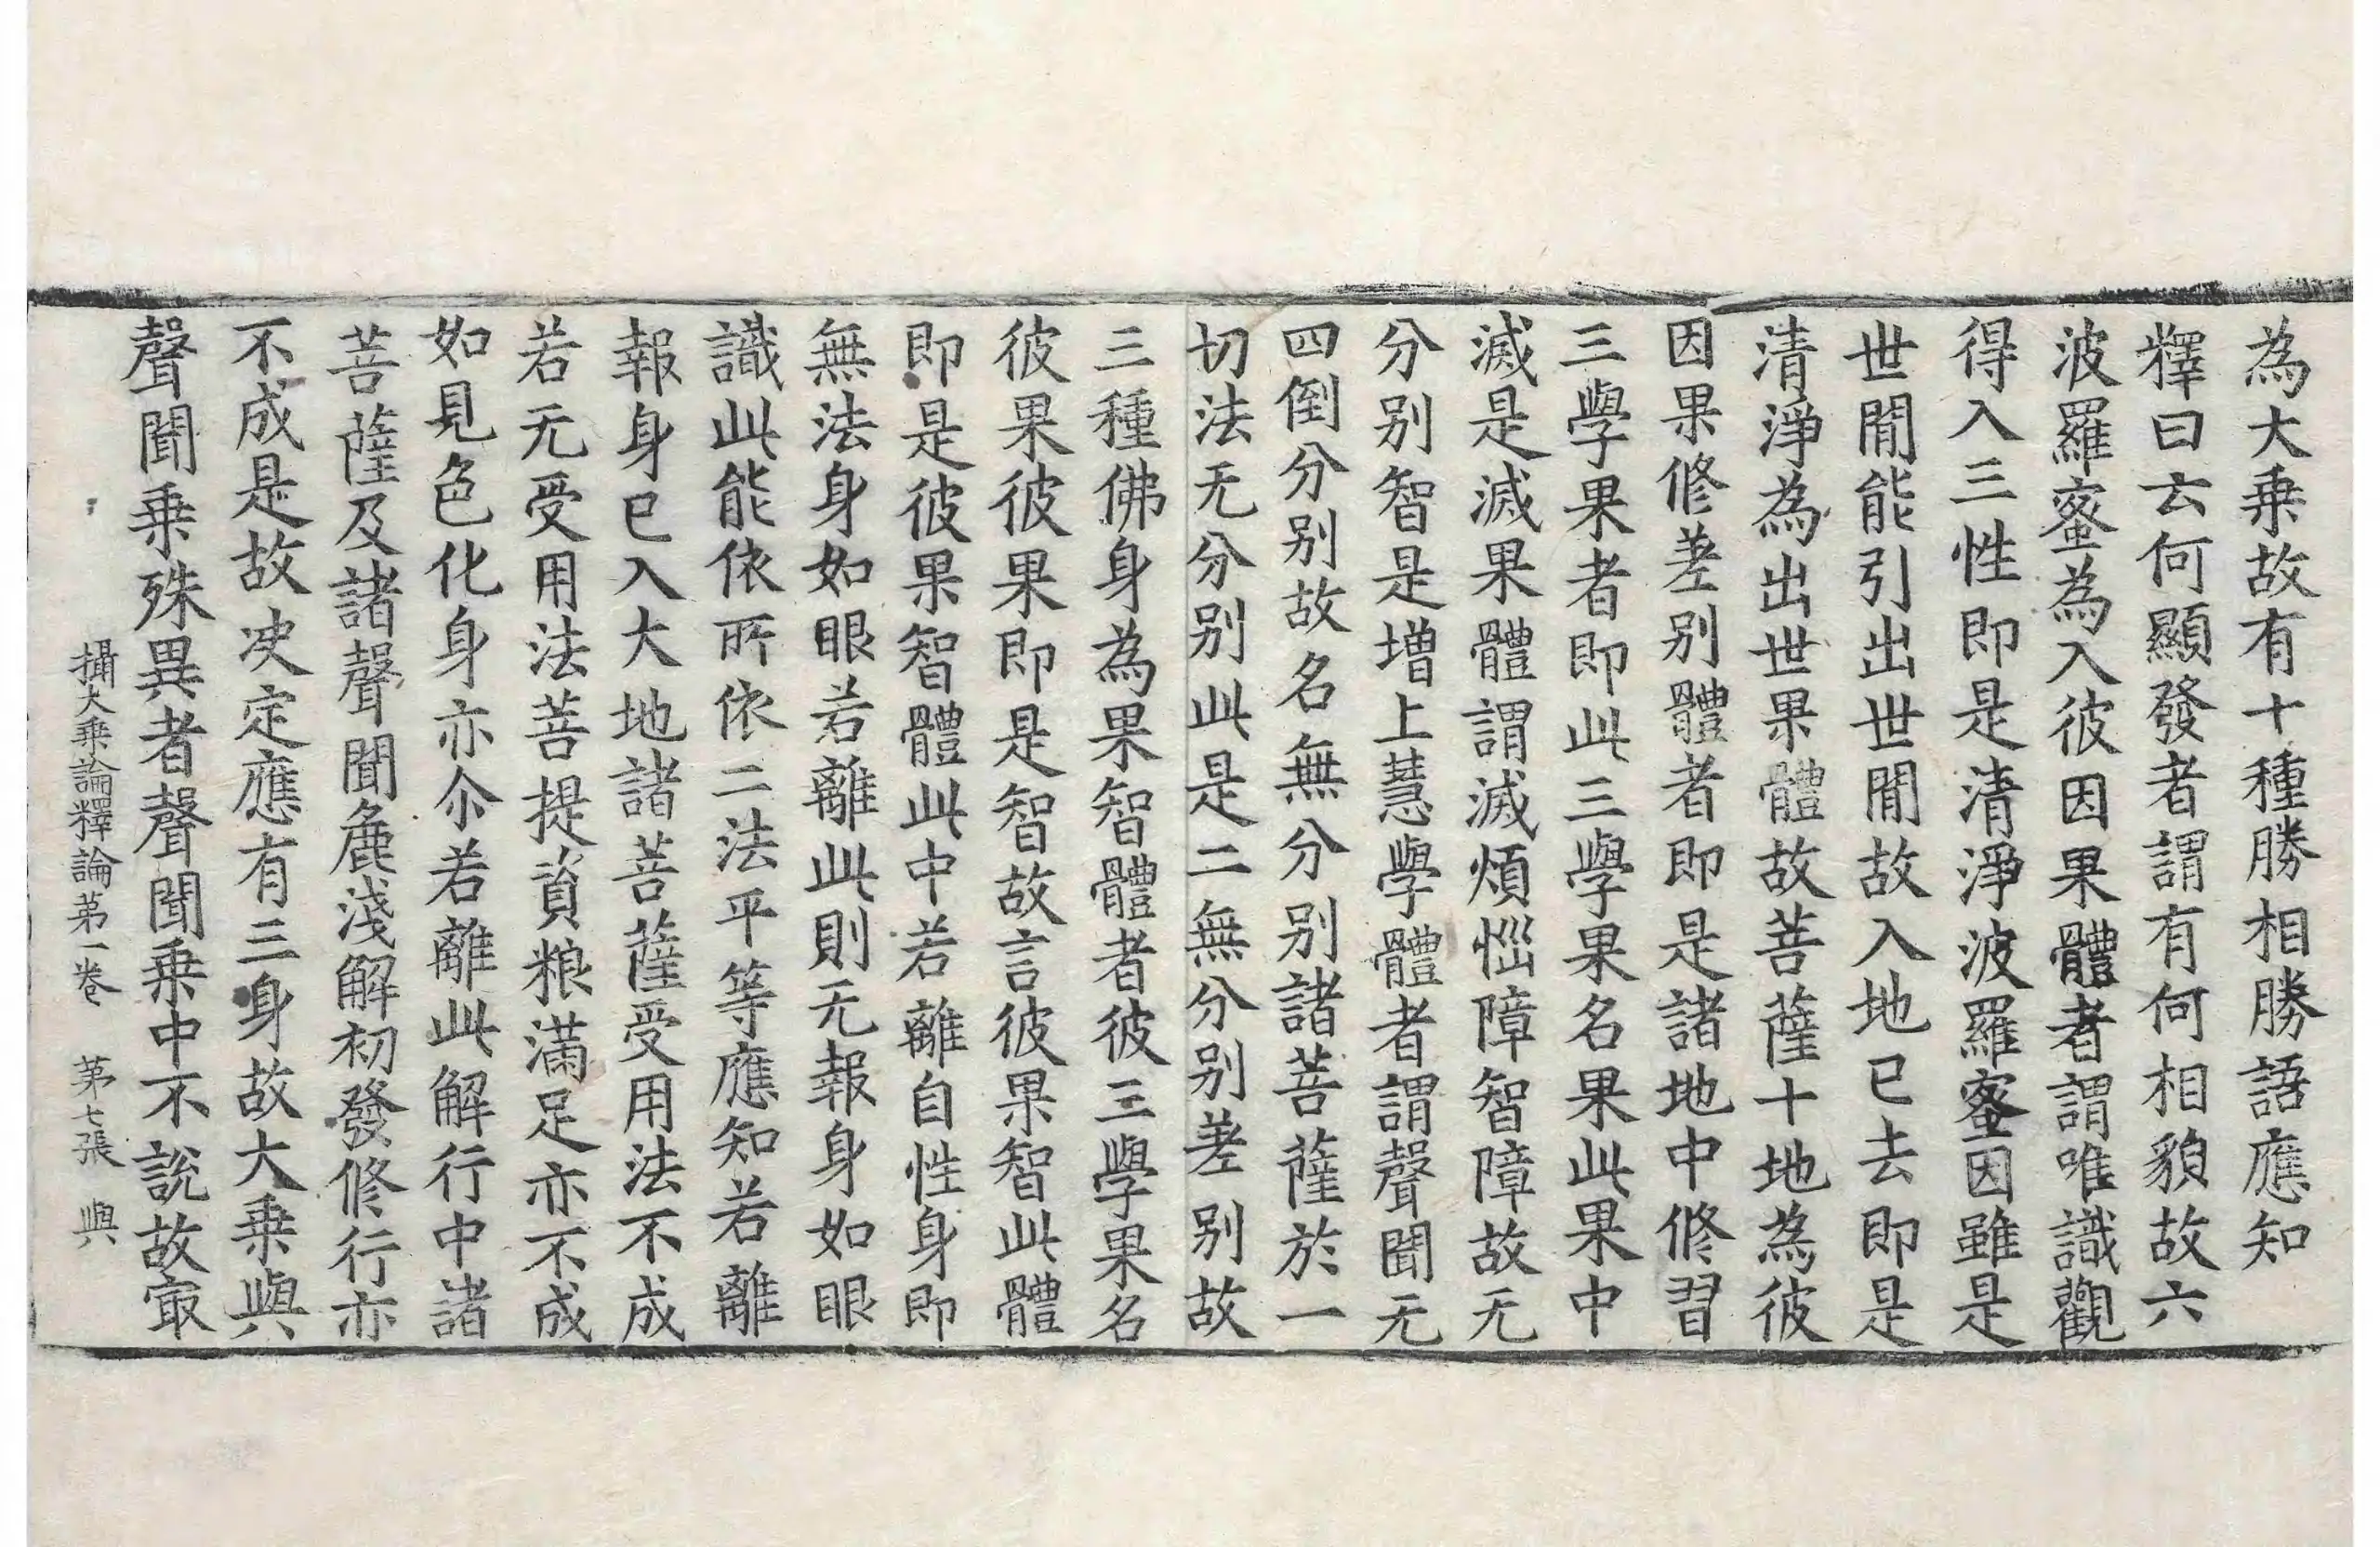 為大乗故有十種勝相勝語應知
釋曰云何顯發者謂有何相貌故六
波羅蜜為入彼因果體者謂唯識觀
得入三性即是清淨波羅蜜因雖是
世間能引出世間故入地已去即是
清淨為出世果體故菩薩十地為彼
因果修差别體者即是諸地中修習
三學果者即此三學果名果此果中
滅是滅果體謂滅煩惱障智障故无
分别智是增上慧學體者謂聲聞无
四倒分别故名無分别諸菩薩於一
切法无分别此是二無分别差别故
三種佛身為果智體者彼三學果名
彼果彼果即是智故言彼果智此體
即是彼果智體此中若離自性身即
無法身如眼若離此則无報身如眼
識此能依所依二法平等應知若離
報身已入大地諸菩薩受用法不成
若无受用法菩提資粮滿足亦不成
如見色化身亦尒若離此解行中諸
菩薩及諸聲聞麁淺解初發修行亦
不成是故决定應有三身故大乗與
聲聞乗殊異者聲聞乗中不說故㝡
攝大乗論釋論苐一卷 苐七張 與